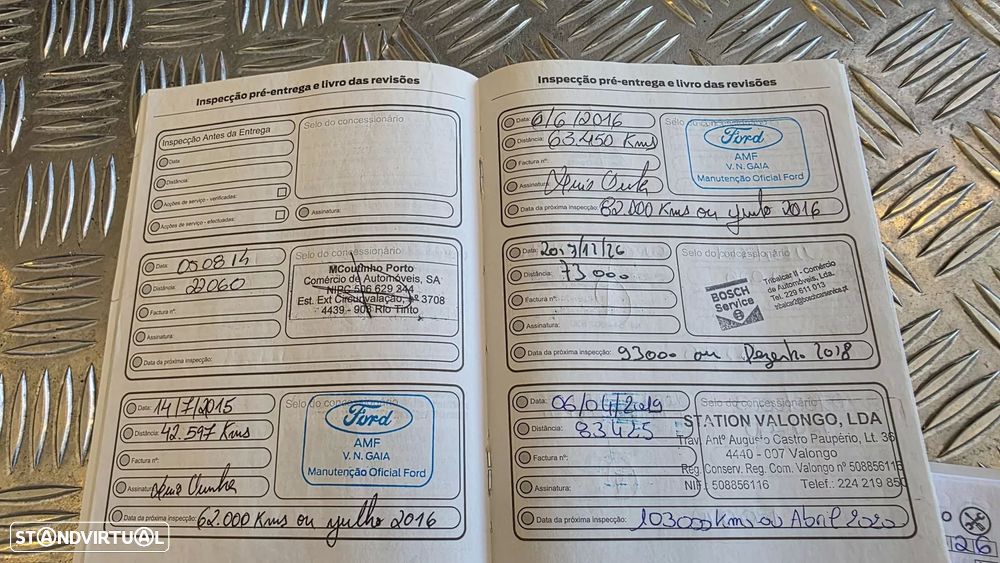 Inspecção pré-entrega e livro das revisões
Inspecção Antes da Entrega
Data:
Distância:
Acções de serviço - verificadas:
Acções de serviço - efectuadas:
Selo do concessionário
Assinatura:
Data: 05 08 14
Distância: 22060
Factura nº:
Assinatura:
Data da próxima inspecção:
Selo do concessionário
MCoutinho Porto
Comércio de Automóveis, SA
NIPC 506 629 344
Est. Ext Circunvalação, nº 3708
4439 - 908 Rio Tinto
Data: 14/7/2015
Distância: 42.597 Kms
Factura nº:
Assinatura:
Data da próxima inspecção: 62.000 Kms ou julho 2016
Selo do concessionário
Ford
AMF
V. N. GAIA
Manutenção Oficial Ford
Inspecção pré-entrega e livro das revisões
Data: 6/6/2016
Distância: 63.450 Kms
Factura nº:
Assinatura:
Data da próxima inspecção: 82.000 Kms ou junho 2016
Selo do concessionário
Ford
AMF
V. N. GAIA
Manutenção Oficial Ford
Data: 2017/12/26
Distância: 73000
Factura nº:
Assinatura:
Data da próxima inspecção: 93000 ou Dezenho 2018
Selo do concessionário
BOSCH
Service
Tribalcar II - Comércio
de Automóveis, Lda.
Tel. 229 611 013
tribalcar2@boschcarservice.pt
Data: 06/04/2019
Distância: 83425
Factura nº:
Assinatura:
Data da próxima inspecção: 103000 Km ou Abril 2020
Selo do concessionário
STATION VALONGO, LDA
Trav. Antº Augusto Castro Paupério, Lt. 36
4440 - 007 Valongo
Reg. Conserv. Reg. Com. Valongo nº 508856116
NIF: 508856116 Telef.: 224 219 850
STANDVIRTUAL